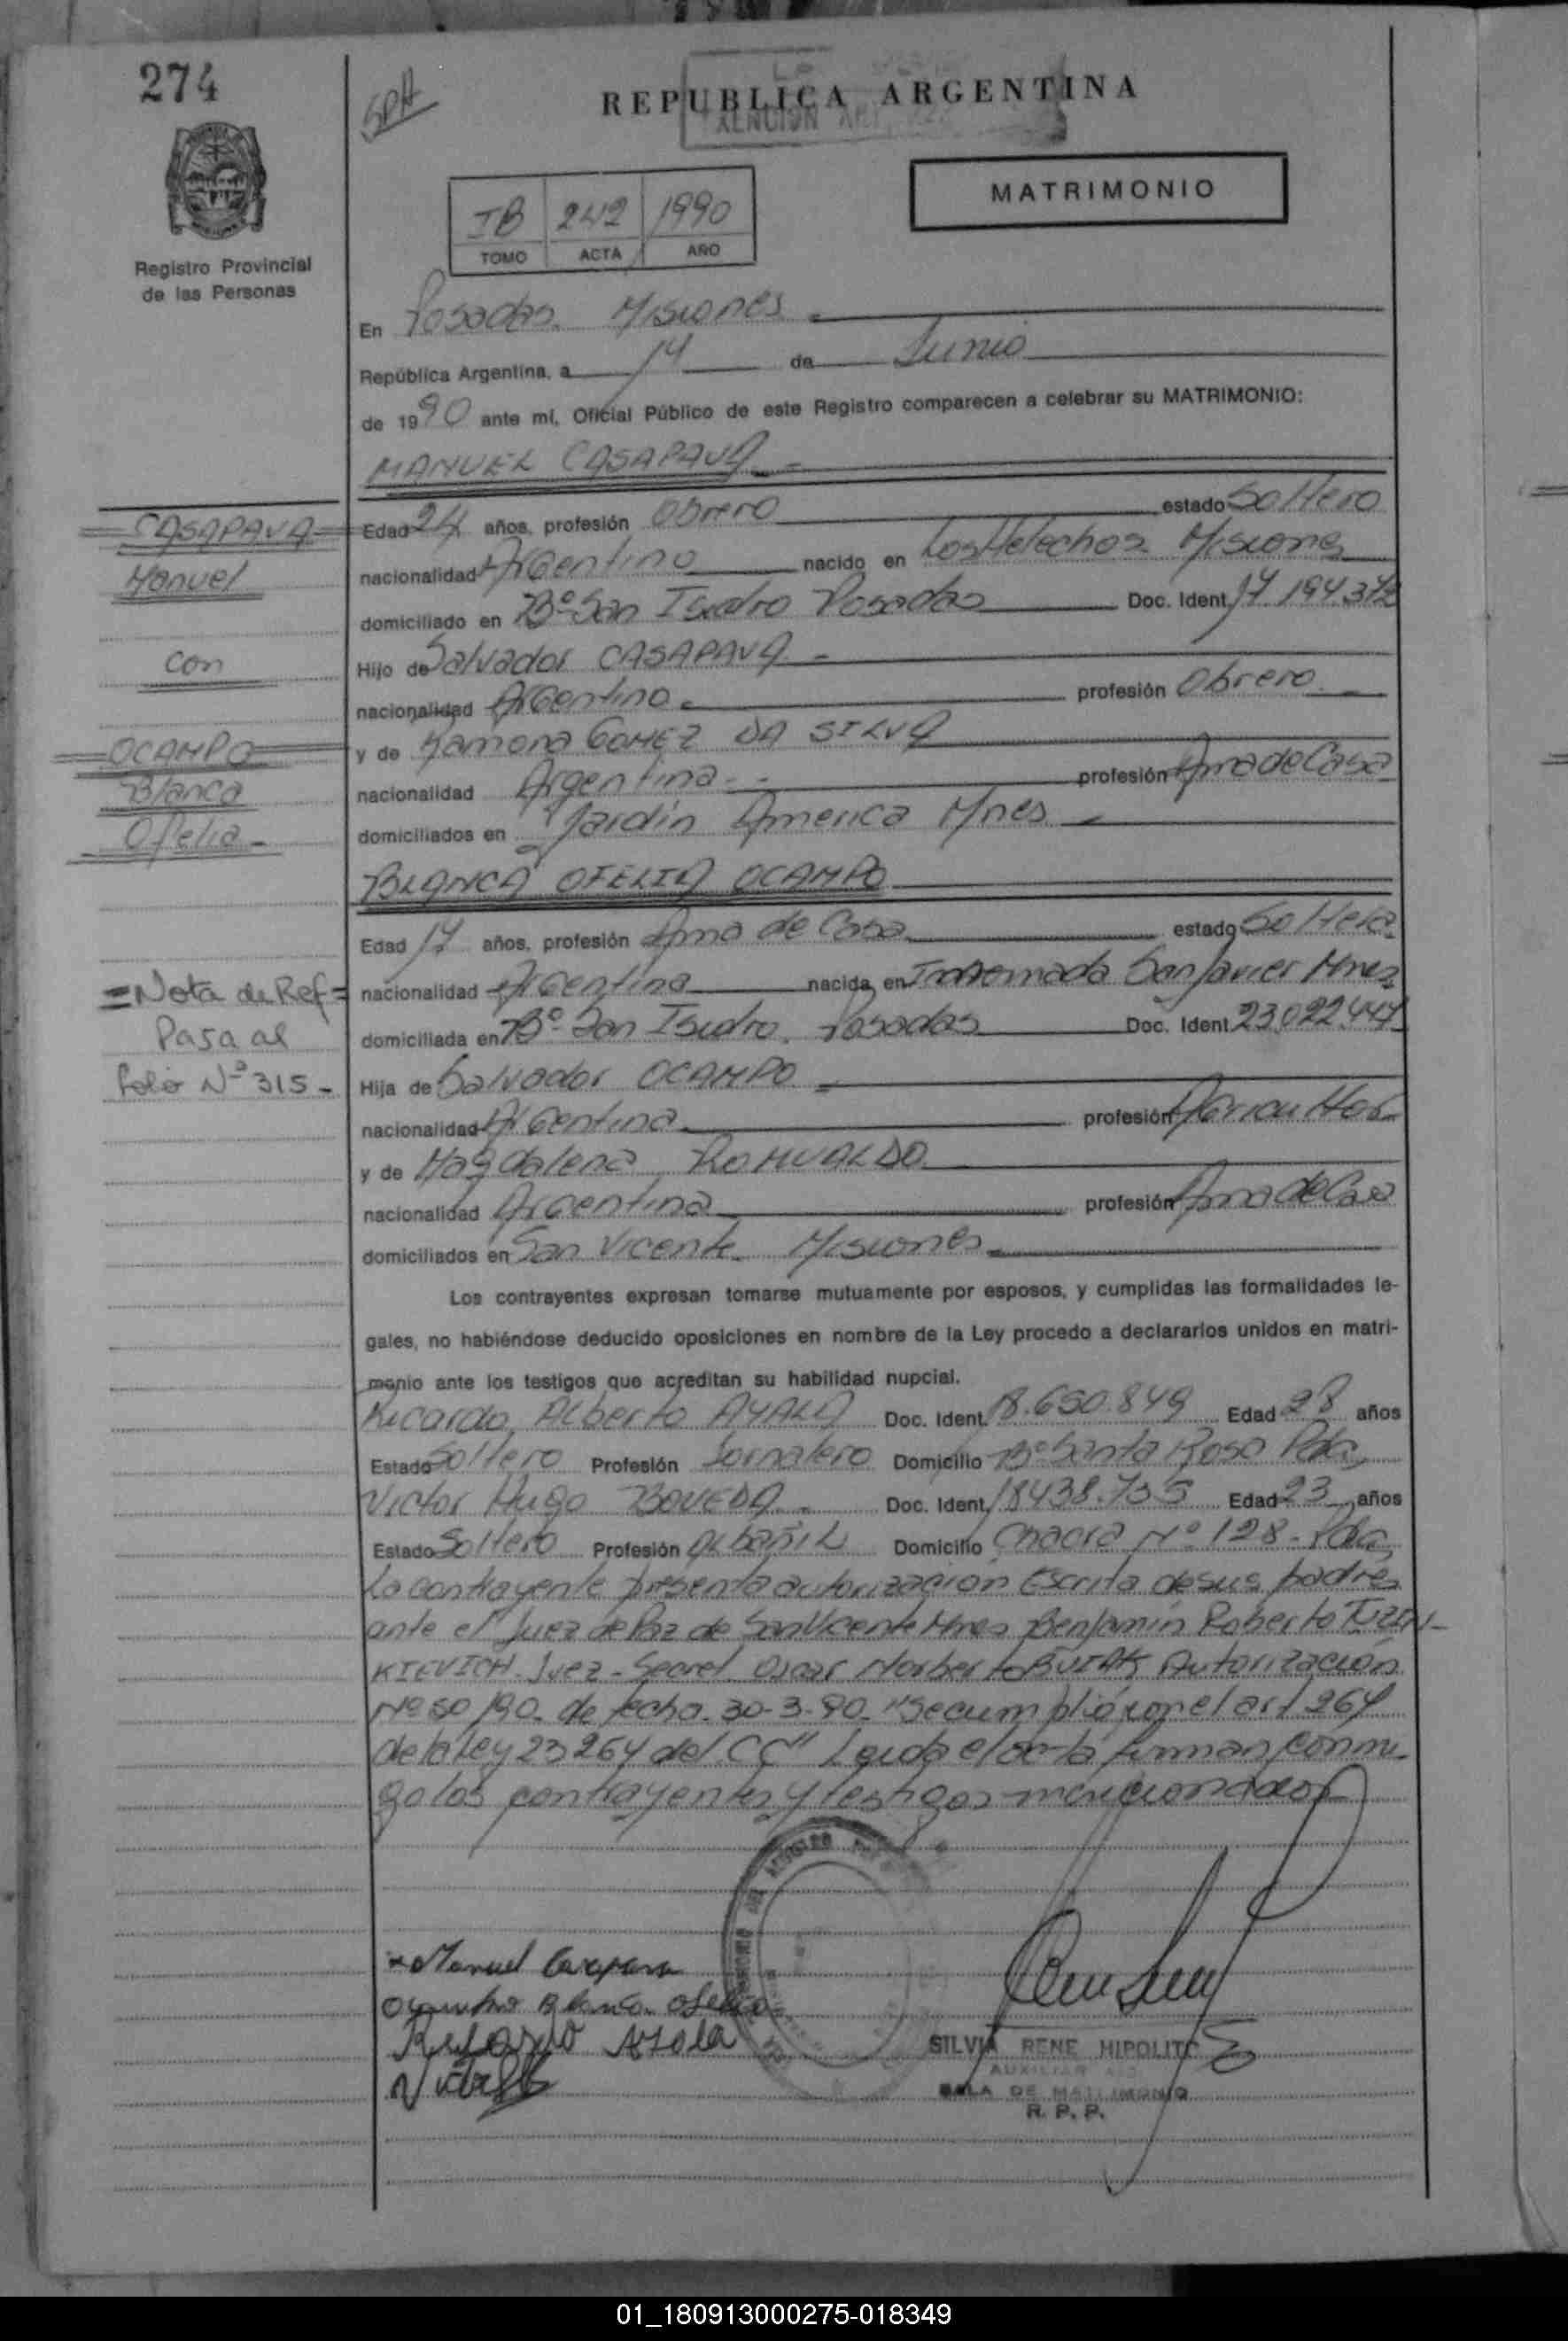 274
REPUBLICA ARGENTINA
MATRIMONIO
IB 242 1990
TOMO ACTA AÑO
Registro Provincial
de las Personas
En Posadas. Misiones
República Argentina, a 14 de Junio
de 1990 ante mí, Oficial Público de este Registro comparecen a celebrar su MATRIMONIO:
MANUEL CASAPAVA
CASAPAVA
Manuel
con
OCAMPO
Blanca
Ofelia
Edad 24 años, profesión Obrero estado Soltero
nacionalidad Argentino nacido en Los Helechos Misiones
domiciliado en Bº San Isidro Posadas Doc. Ident.
Hijo de Salvador CASAPAVA
nacionalidad Argentino profesión Obrero
y de Ramona GOMEZ DA SILVA
nacionalidad Argentina profesión Ama de Casa
domiciliados en Jardín America Mnes
BLANCA OFELIA OCAMPO
Edad 17 años, profesión Ama de Casa estado Soltera
nacionalidad Argentina nacida en San Javier Mnes
domiciliada en Bº San Isidro. Posadas Doc. Ident.
Hija de Salvador OCAMPO
nacionalidad Argentina profesión Agricultor
y de Magdalena ROMUALDO
nacionalidad Argentina profesión Ama de Casa
domiciliados en San Vicente Misiones
=Nota de Ref=
Pasa al
folio Nº 315-
Los contrayentes expresan tomarse mutuamente por esposos, y cumplidas las formalidades le-
gales, no habiéndose deducido oposiciones en nombre de la Ley procedo a declararlos unidos en matri-
monio ante los testigos que acreditan su habilidad nupcial.
Ricardo Alberto AYALA Doc. Ident. 18.650.849 Edad 28 años
Estado Soltero Profesión Jornalero Domicilio Bº Santa Rosa Pdas
Victor Hugo BOVEDA Doc. Ident. 18438.735 Edad 23 años
Estado Soltero Profesión Albañil Domicilio Chacra Nº 128 - Pdas
La contrayente presenta autorización Escrita de sus padres
ante el Juez de Paz de San Vicente Mnes Benjamin Roberto
KIEVICH Juez - Secret. Oscar Norberto Autorización
Nº 50/90 de fecha 30-3-90. "Se cumplió con el art 264
de la Ley 23264 del CC" Leida el acta firman conmi
go los contrayentes y testigos mencionados
Manuel Casapava
Ocampo Blanca Ofelia
Ricardo Ayala
SILVIA RENE HIPOLITO
SALA DE MATRIMONIO
R. P. P.
01_180913000275-018349